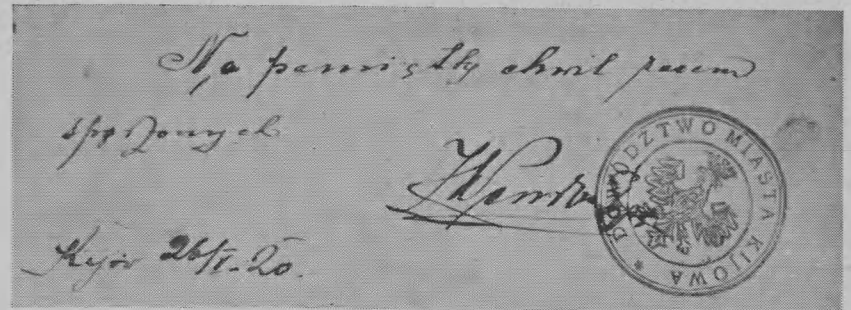 Na pamiątkę chwil razem
spędzonych
Kijów 26/V-20.
DOWÓDZTWO MIASTA KIJOWA *